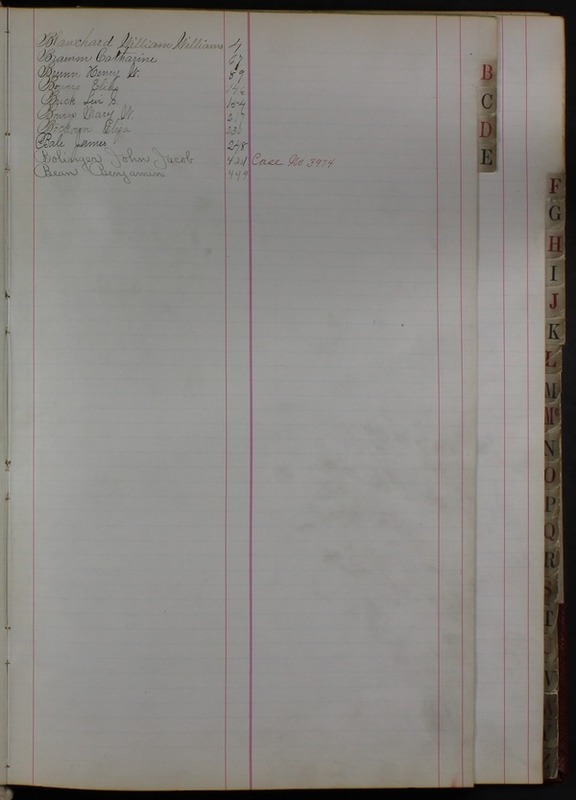 Blanchard William Williams 4
Bramm Catharine 67
Bunn Henry W. 89
Bowns Eliza 146
Buck Levi B. 184
Bowns Mary W. 217
Bockoven Eliza 230
Bale James 278
Bolinger John Jacob 421 Case No 3974
Bean Benjamin 449
B
C
D
E
F
G
H
I
J
K
L
M
Mc
N
O
P
Q
R
S
T